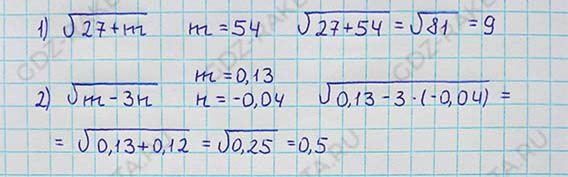 1) √27+m m = 54 √27+54 = √81 = 9
m = 0,13
2) √m - 3n n = -0,04 √0,13 - 3 · (-0,04) =
= √0,13 + 0,12 = √0,25 = 0,5